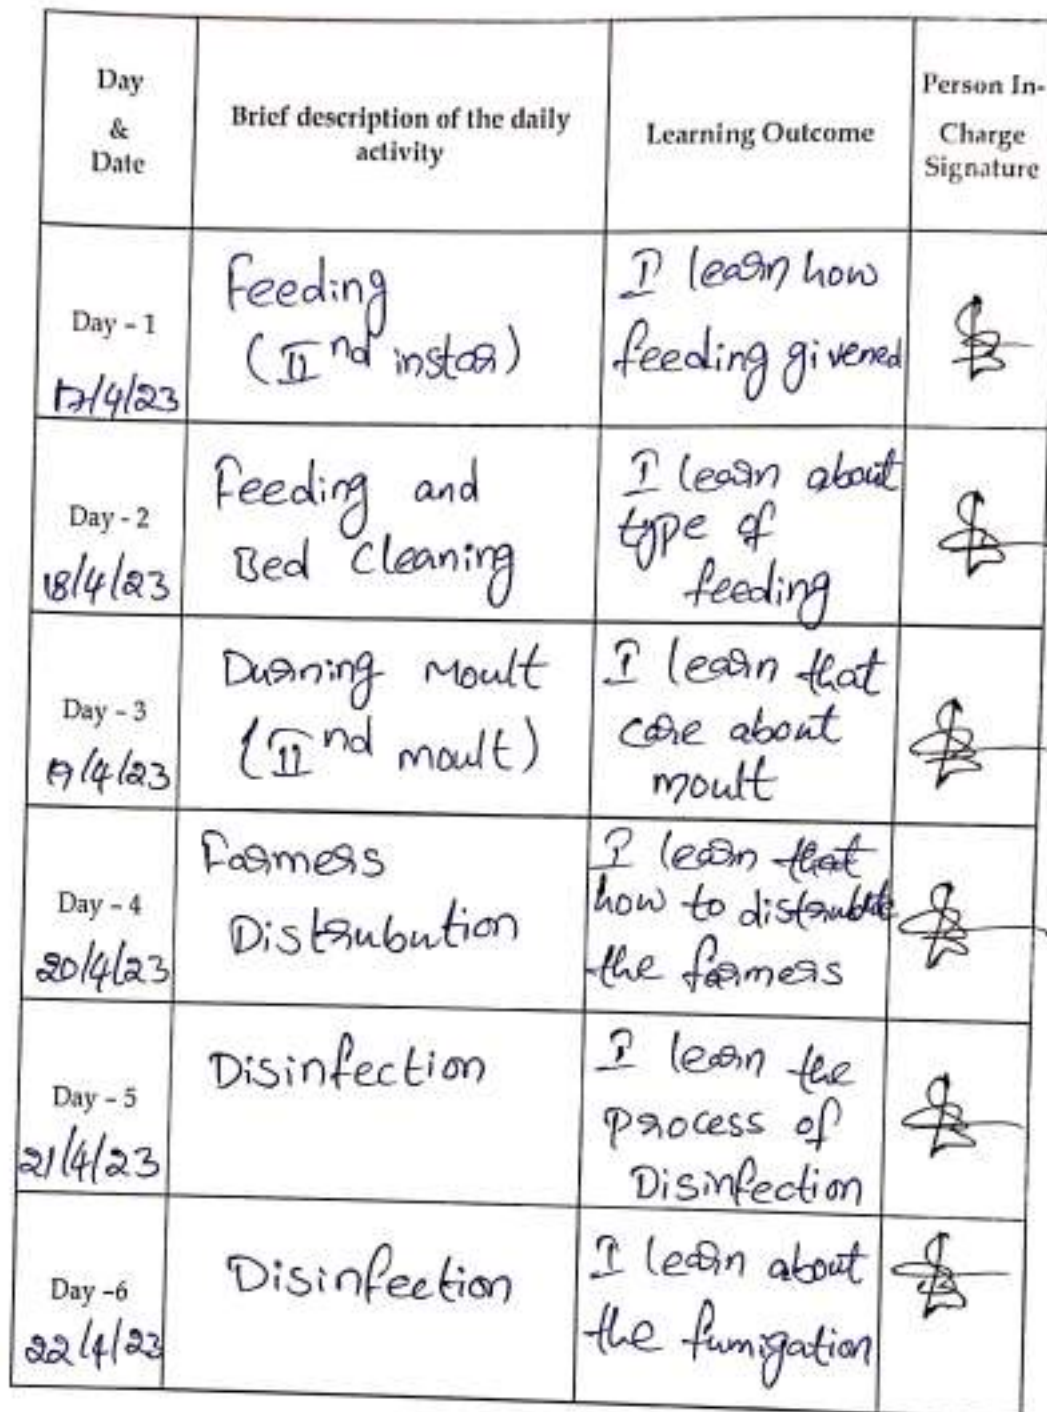 Day
&
Date
Brief description of the daily
activity
Learning Outcome
Person In-
Charge
Signature
Day - 1
17/4/23
Feeding
(IInd instar)
I learn how
feeding givened
Day - 2
18/4/23
Feeding and
Bed Cleaning
I learn about
type of
feeding
Day - 3
19/4/23
Durning moult
(IInd moult)
I learn that
care about
moult
Day - 4
20/4/23
Farmers
Distrubution
I learn that
how to distrubute
the farmers
Day - 5
21/4/23
Disinfection
I learn the
process of
Disinfection
Day -6
22/4/23
Disinfection
I learn about
the fumigation